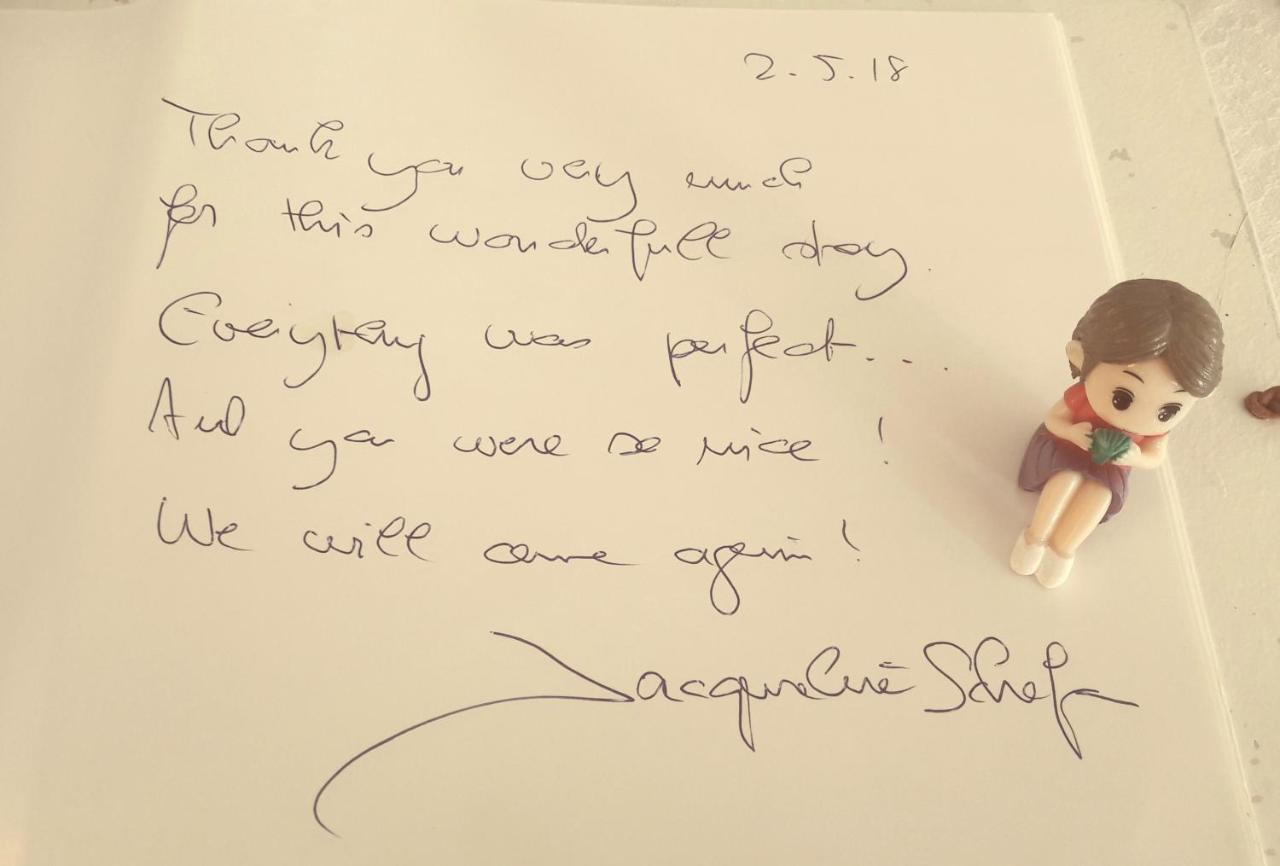 2.5.18
Thank you very much
for this wonderfull day.
Everytheng was perfect....
And you were so nice!
We will come again!
Jacqueline